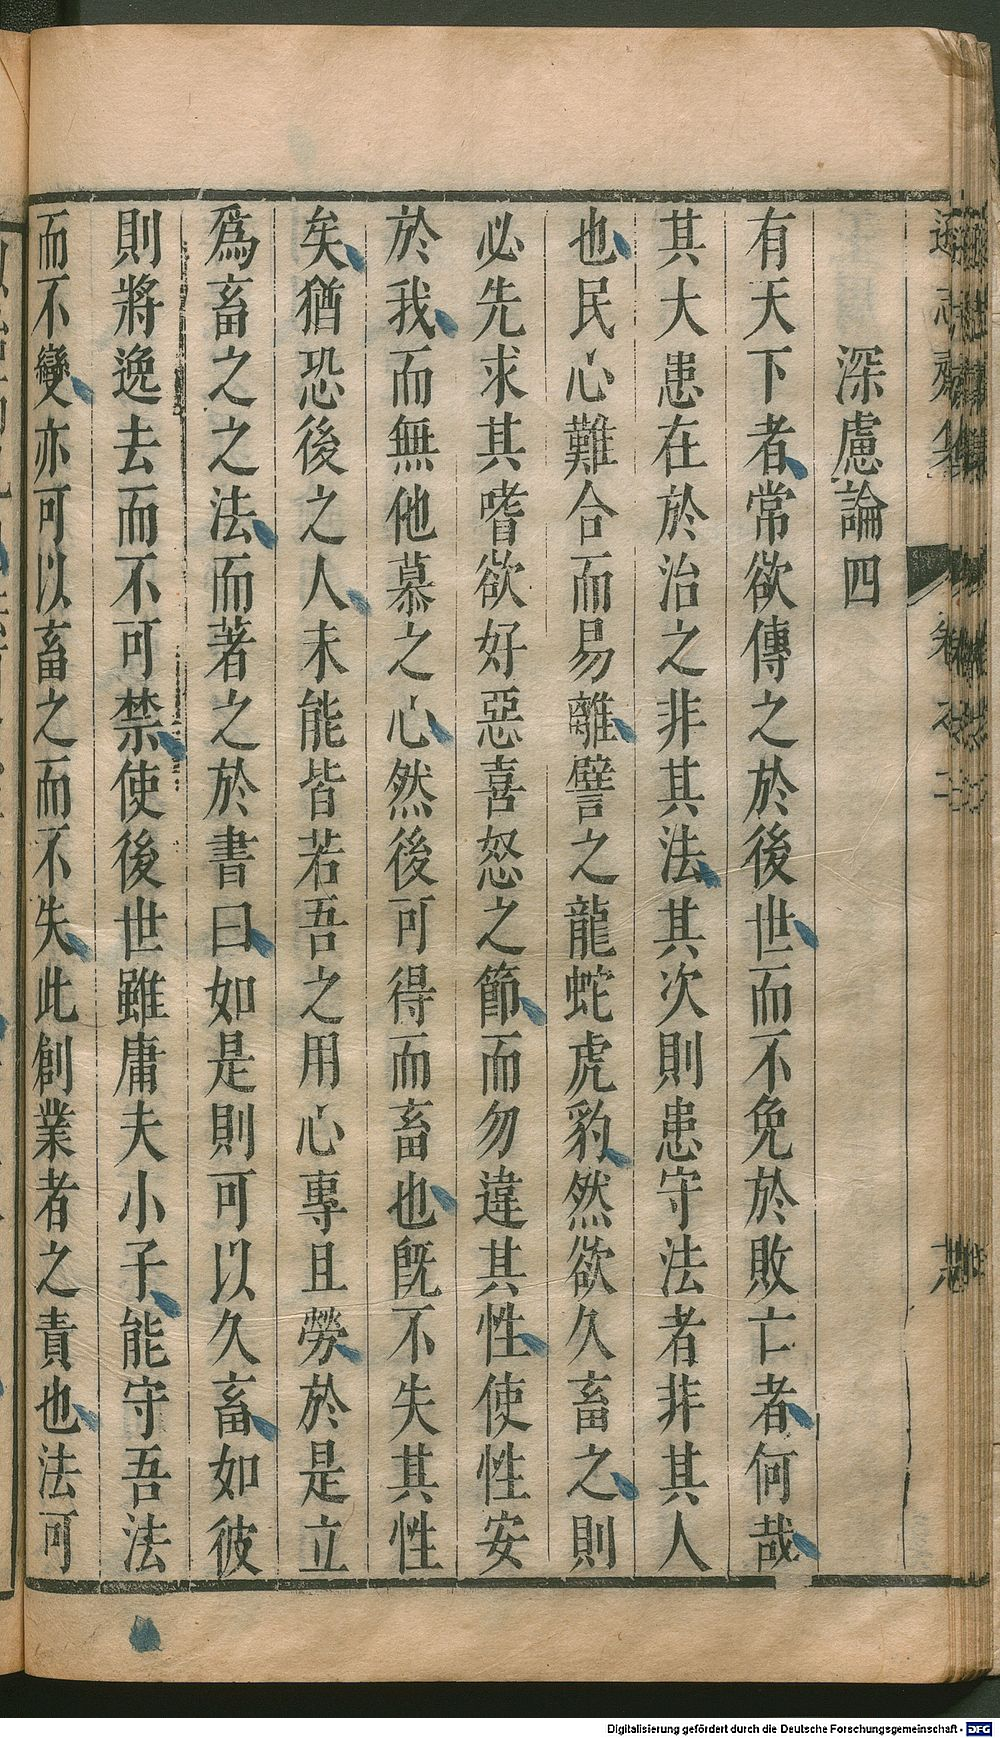 深慮論四
有天下者常欲傳之於後世而不免於敗亡者何哉
其大患在於治之非其法其次則患守法者非其人
也民心難合而易離譬之龍蛇虎豹然欲久畜之則
必先求其嗜欲好惡喜怒之節而勿違其性使性安
於我而無他慕之心然後可得而畜也旣不失其性
矣猶恐後之人未能皆若吾之用心專且勞於是立
爲畜之之法而著之於書曰如是則可以久畜如彼
則將逸去而不可禁使後世雖庸夫小子能守吾法
而不變亦可以畜之而不失此創業者之責也法可
Digitalisierung gefördert durch die Deutsche Forschungsgemeinschaft - DFG